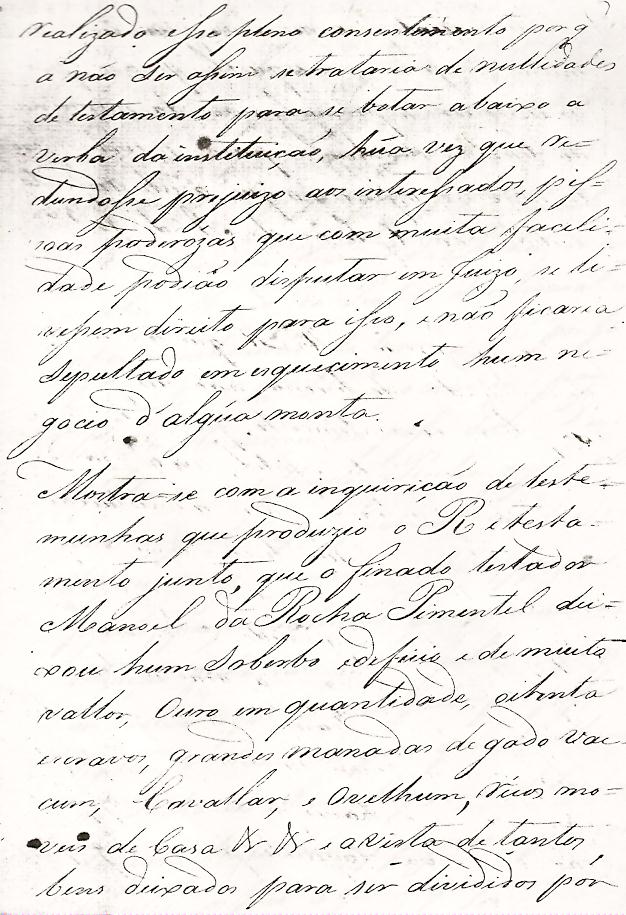 realizado esse pleno consentimento porq
a não ser assim se trataria de nullidades
de testamento para se botar abaixo a
verba da instituição, húa vez que re-
dundasse prejuizo aos interessados, pes-
soas poderózas que com muita facili-
dade podião disputar em Juizo, se ti-
vessem direito para isso, e não ficaria
sepultado em esquecimento hum ne-
gocio d'algúa monta.
Mostra-se com a inquirição de teste-
munhas que produzio o R e testa-
mento junto, que o finado testador
Manoel da Rocha Pimentel dei-
xou hum soberbo edeficio e de muito
vallor, Ouro em quantidade, oitenta
escravos, grandes manadas de gado vac-
cum, Cavallar, e Ovelhum, ricos mo-
veis de Casa & & e a vista de tantos
bens deixados para ser divididos por